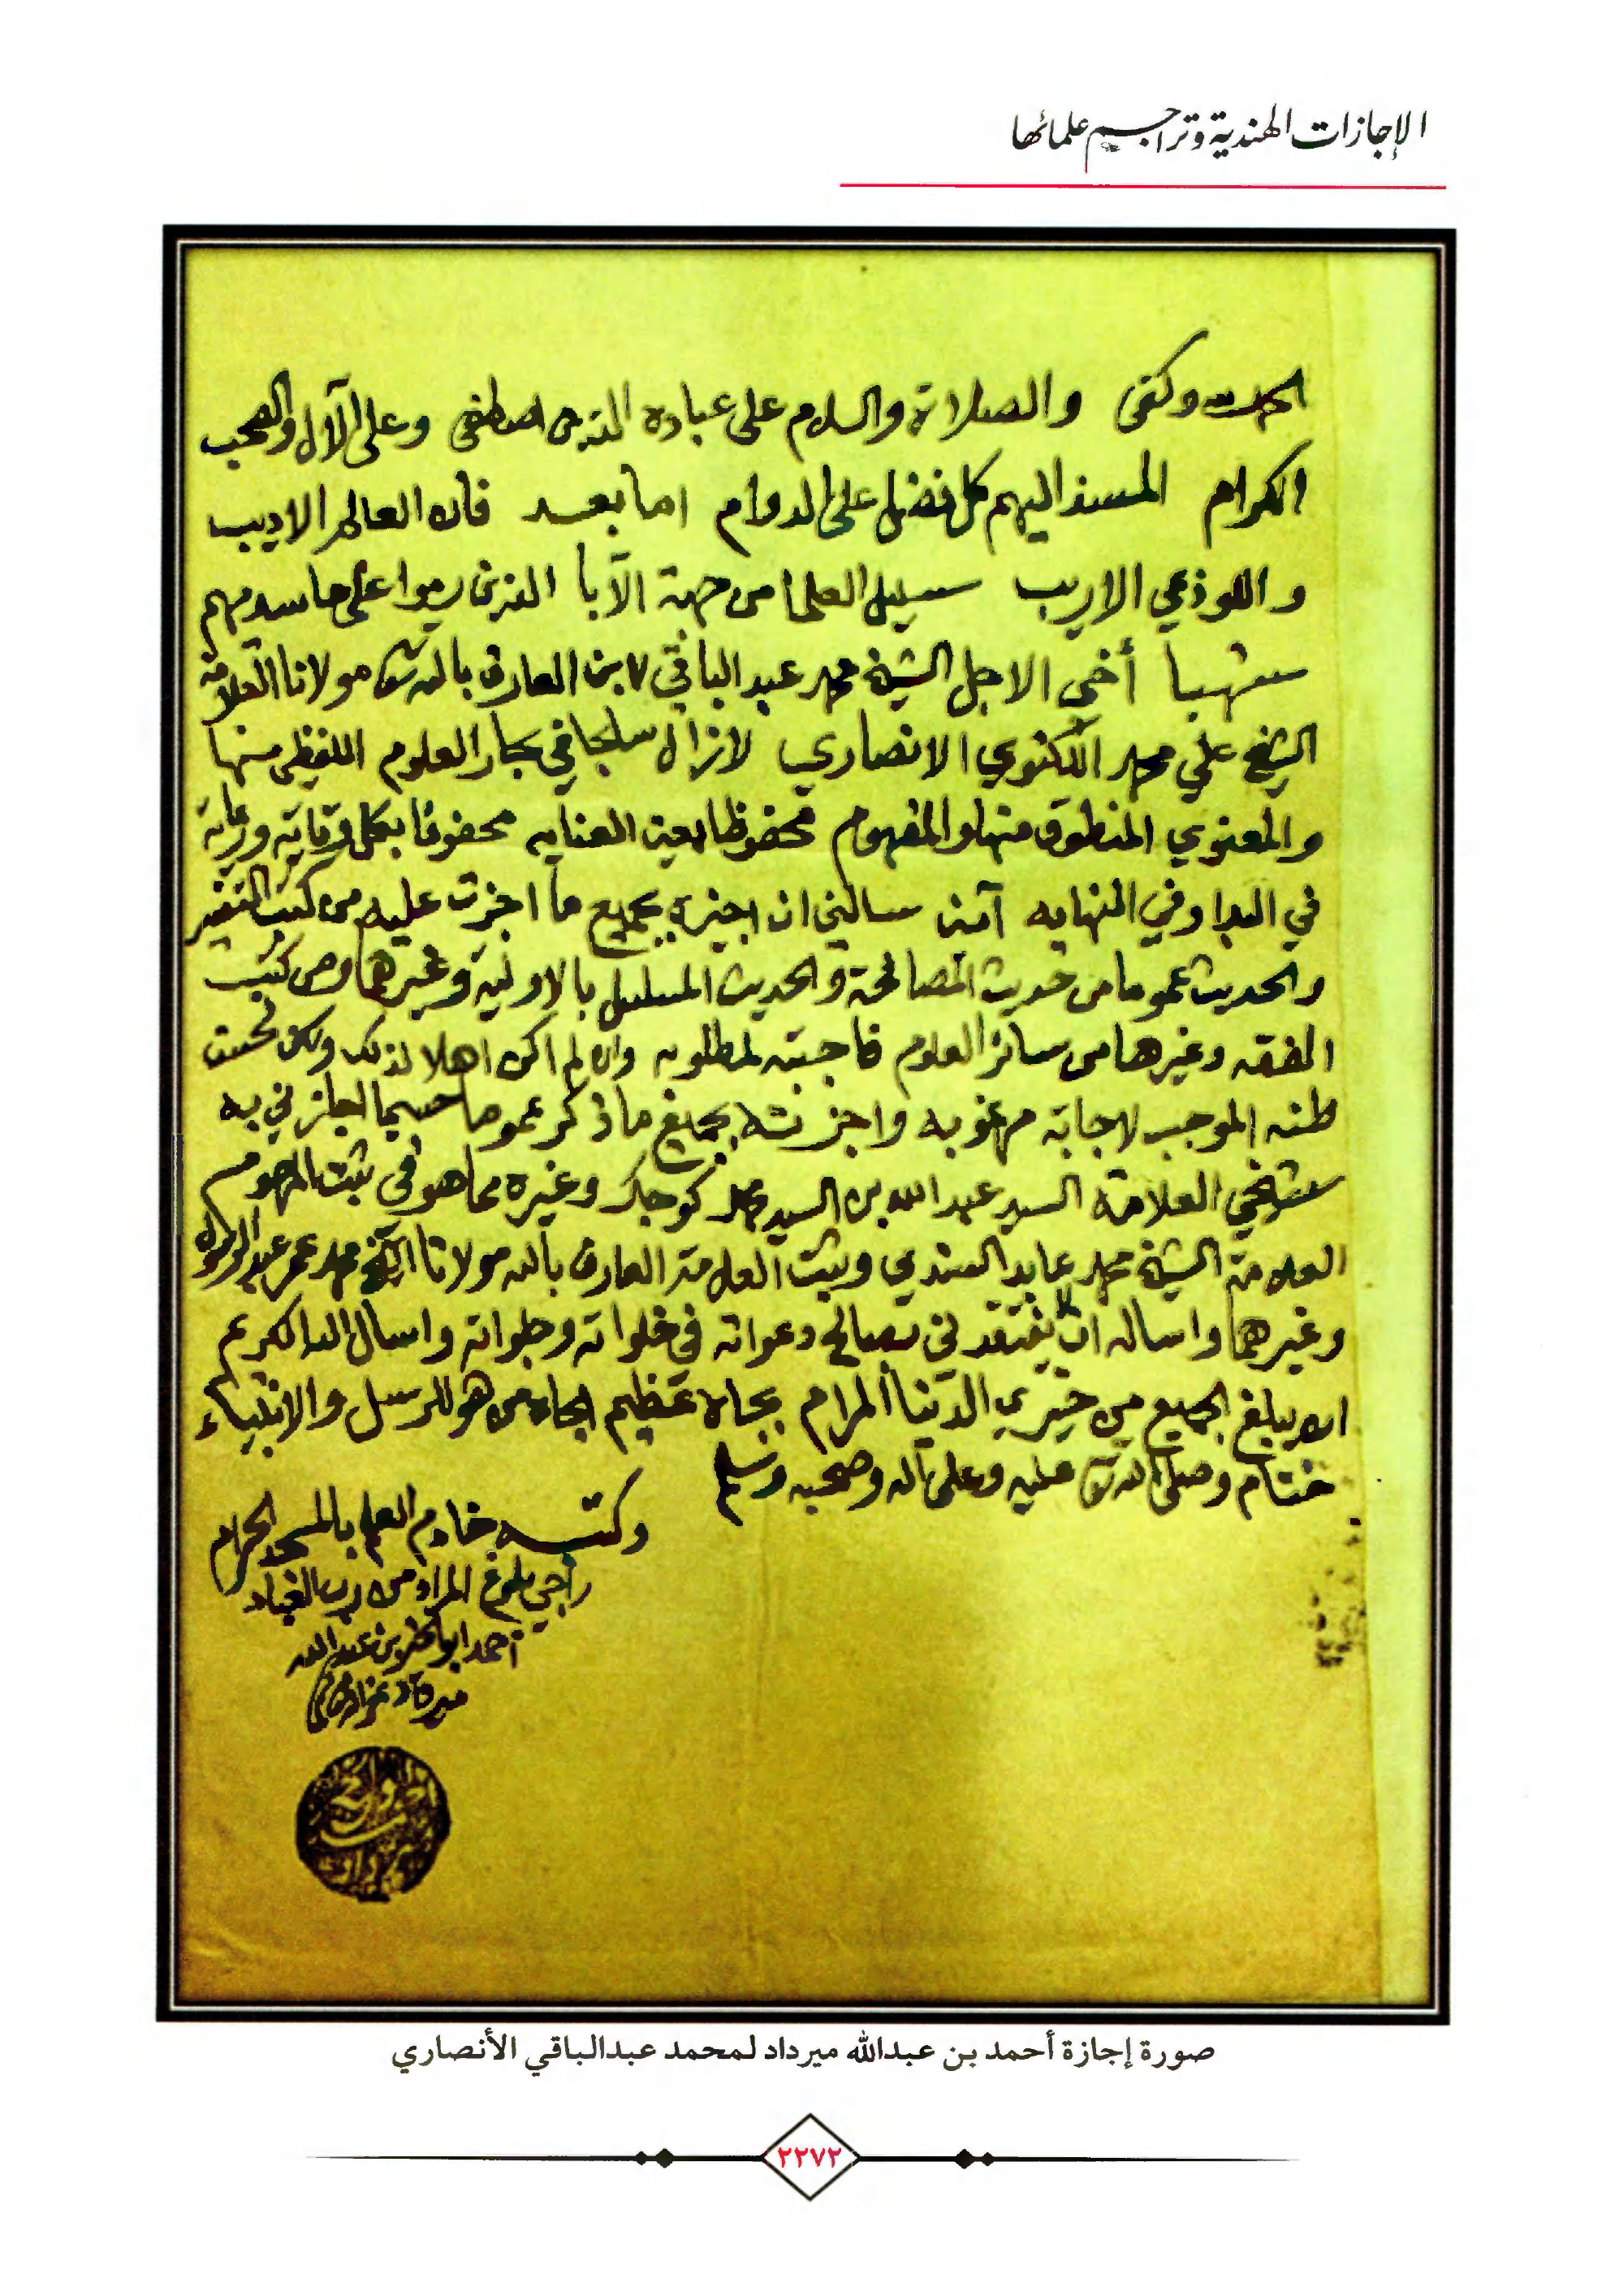 الإجازات الهندية وتراجم علمائها
الحمد لله وكفى والصلاة والسلام على عباده الذين اصطفى وعلى الآل والصحب
الكرام المسند اليهم كل فضل على الدوام اما بعد فان العالم الاديب
واللوذعي الاريب سليل العلما من جهة الآبا الذين رموا على حاسديهم
أخي الاجل الشيخ محمد عبد الباقي ابن العارف بالله تعالى مولانا العلامة
الشيخ علي محمد اللكنوي الانصاري لازال سابحا في بحار العلوم اللفظي منها
والمعنوي المنطوق منها والمفهوم محفوظا بعين العنايه محفوفا بكل وقاية ورعاية
في البدا وفي النهايه آمين سالني ان اجيزه بجميع ما اجزت عليه من كتب التفسير
والحديث عموما من حديث المصافحة والحديث المسلسل بالاولية وغيرهما ومن كتب
الفقه وغيرها من سائر العلوم فاجبته لمطلوبه وان لم اكن اهلا لذلك ولكن تحسين
ظنه الموجب لاجابة مرغوبه واجزته بجميع ما ذكر عموما حسبما اجازني به
شيخي العلامة السيد عبد الله بن السيد محمد كوجك وغيره مما هو في ثبت المرحوم
العلامة الشيخ محمد عابد السندي وثبت العلامة العارف بالله مولانا الشيخ محمد عمر عبد الرسول
وغيرهما واساله ان يفتقدني بصالح دعواته في خلواته وجلواته واسال الله الكريم
ان يبلغ الجميع من خيري الدنيا المرام بجاه عظيم الجاه من هو للرسل والانبياء
ختام وصلى الله تعالى عليه وعلى آله وصحبه وسلم
وكتبه خادم العلم بالمسجد الحرام
راجي بلوغ المراد من رب العباد
احمد ابو الخير بن عبد الله
ميرداد
صورة إجازة أحمد بن عبدالله ميرداد لمحمد عبدالباقي الأنصاري
٢٢٧٢